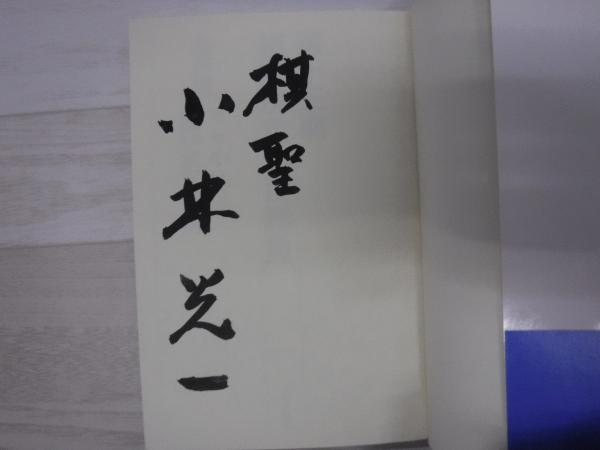 棋聖
小林光一